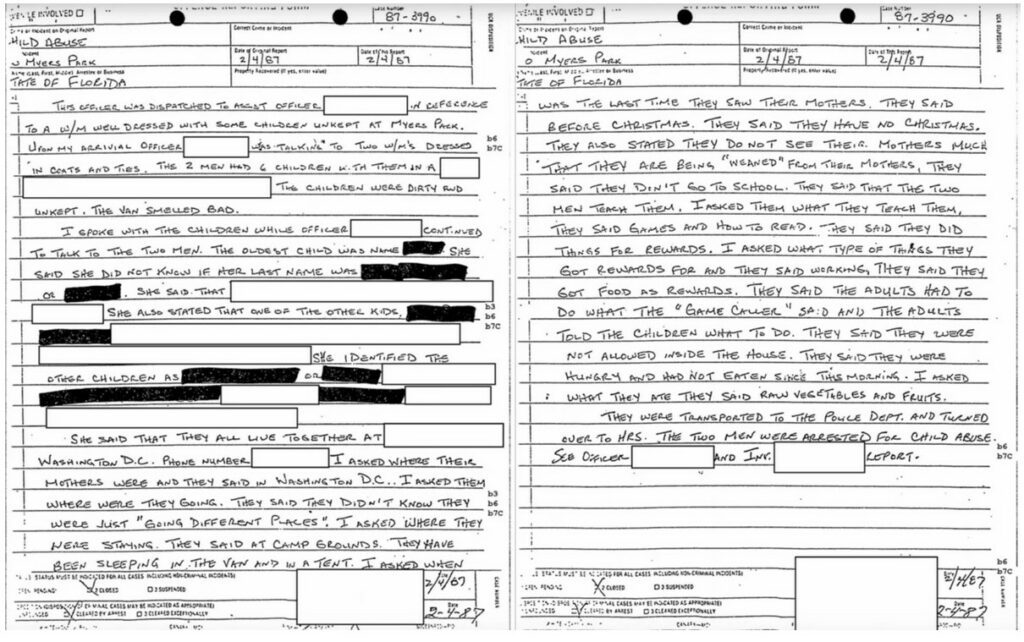 OFFENSE REPORTING FORM
VENILE INVOLVED
87-3990
Correct Crime or Incident
HILD ABUSE
Incident
Date of Original Report
Date of This Report
O MYERS PARK
2/4/87
2/4/87
Property Recovered (If yes, enter value)
TATE OF FLORIDA
THIS OFFICER WAS DISPATCHED TO ASSIST OFFICER IN REFERENCE
TO A W/M WELL DRESSED WITH SOME CHILDREN UNKEPT AT MYERS PARK.
b6
UPON MY ARRIVAL OFFICER WAS TALKING TO TWO W/M'S DRESSED
b7C
IN COATS AND TIES. THE 2 MEN HAD 6 CHILDREN WITH THEM IN A
THE CHILDREN WERE DIRTY AND
UNKEPT. THE VAN SMELLED BAD.
I SPOKE WITH THE CHILDREN WHILE OFFICER CONTINUED
TO TALK TO THE TWO MEN. THE OLDEST CHILD WAS NAME SHE
SAID SHE DID NOT KNOW IF HER LAST NAME WAS
OR . SHE SAID THAT
b3
SHE ALSO STATED THAT ONE OF THE OTHER KIDS,
b6
b7C
SHE IDENTIFIED THE
OTHER CHILDREN AS OR
SHE SAID THAT THEY ALL LIVE TOGETHER AT
WASHINGTON D.C. PHONE NUMBER I ASKED WHERE THEIR
MOTHERS WERE AND THEY SAID IN WASHINGTON D.C.. I ASKED THEM
b3
WHERE WERE THEY GOING. THEY SAID THEY DIDN'T KNOW THEY
b6
b7C
WERE JUST "GOING DIFFERENT PLACES". I ASKED WHERE THEY
WERE STAYING. THEY SAID AT CAMP GROUNDS. THEY HAVE
BEEN SLEEPING IN THE VAN AND IN A TENT. I ASKED WHEN
STATUS MUST BE INDICATED FOR ALL CASES INCLUDING NON-CRIMINAL INCIDENTS)
PEN PENDING 2 CLOSED 3 SUSPENDED
2/4/87
CASES MAY BE INDICATED AS APPROPRIATE)
2 CLEARED BY ARREST 3 CLEARED EXCEPTIONALLY
Date
2-4-87
VENILE INVOLVED
87-3990
Correct Crime or Incident
HILD ABUSE
Date of Original Report
Date of This Report
O MYERS PARK
2/4/87
2/4/87
Property Recovered (If yes, enter value)
TATE OF FLORIDA
WAS THE LAST TIME THEY SAW THEIR MOTHERS. THEY SAID
BEFORE CHRISTMAS. THEY SAID THEY HAVE NO CHRISTMAS.
THEY ALSO STATED THEY DO NOT SEE THEIR MOTHERS MUCH
THAT THEY ARE BEING "WEANED" FROM THEIR MOTHERS, THEY
SAID THEY DON'T GO TO SCHOOL. THEY SAID THAT THE TWO
MEN TEACH THEM. I ASKED THEM WHAT THEY TEACH THEM,
THEY SAID GAMES AND HOW TO READ. THEY SAID THEY DID
THINGS FOR REWARDS. I ASKED WHAT TYPE OF THINGS THEY
GOT REWARDS FOR AND THEY SAID WORKING, THEY SAID THEY
GOT FOOD AS REWARDS. THEY SAID THE ADULTS HAD TO
DO WHAT THE "GAME CALLER" SAID AND THE ADULTS
TOLD THE CHILDREN WHAT TO DO. THEY SAID THEY WERE
NOT ALLOWED INSIDE THE HOUSE. THEY SAID THEY WERE
HUNGRY AND HAD NOT EATEN SINCE THIS MORNING. I ASKED
WHAT THEY ATE THEY SAID RAW VEGETABLES AND FRUITS.
THEY WERE TRANSPORTED TO THE POLICE DEPT. AND TURNED
OVER TO HRS. THE TWO MEN WERE ARRESTED FOR CHILD ABUSE.
b6
SEE OFFICER AND INV. REPORT.
b7C
b6
b7C
STATUS MUST BE INDICATED FOR ALL CASES INCLUDING NON-CRIMINAL INCIDENTS)
PEN PENDING 2 CLOSED 3 SUSPENDED
2/4/87
CASES MAY BE INDICATED AS APPROPRIATE)
CLEARED BY ARREST 3 CLEARED EXCEPTIONALLY
Date
2-4-87